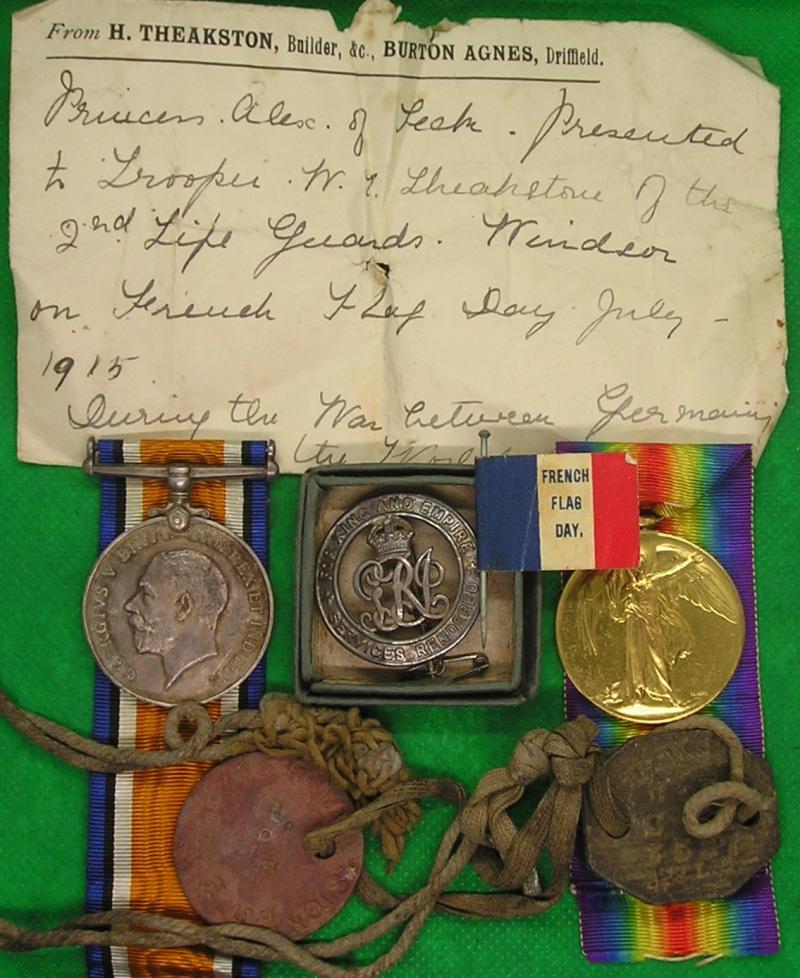 From H. THEAKSTON, Builder, &c., BURTON AGNES, Driffield.
Princess. Alex. of Teck. Presented
to Trooper. W. Theakstone of the
2nd Life Guards. Windsor
on French Flag Day July -
1915
During the War between Germany
the World
FOR KING AND EMPIRE
SERVICES RENDERED
FRENCH
FLAG
DAY.
GEORGIVS V BRITT: OMN: REX ET IND: IMP: